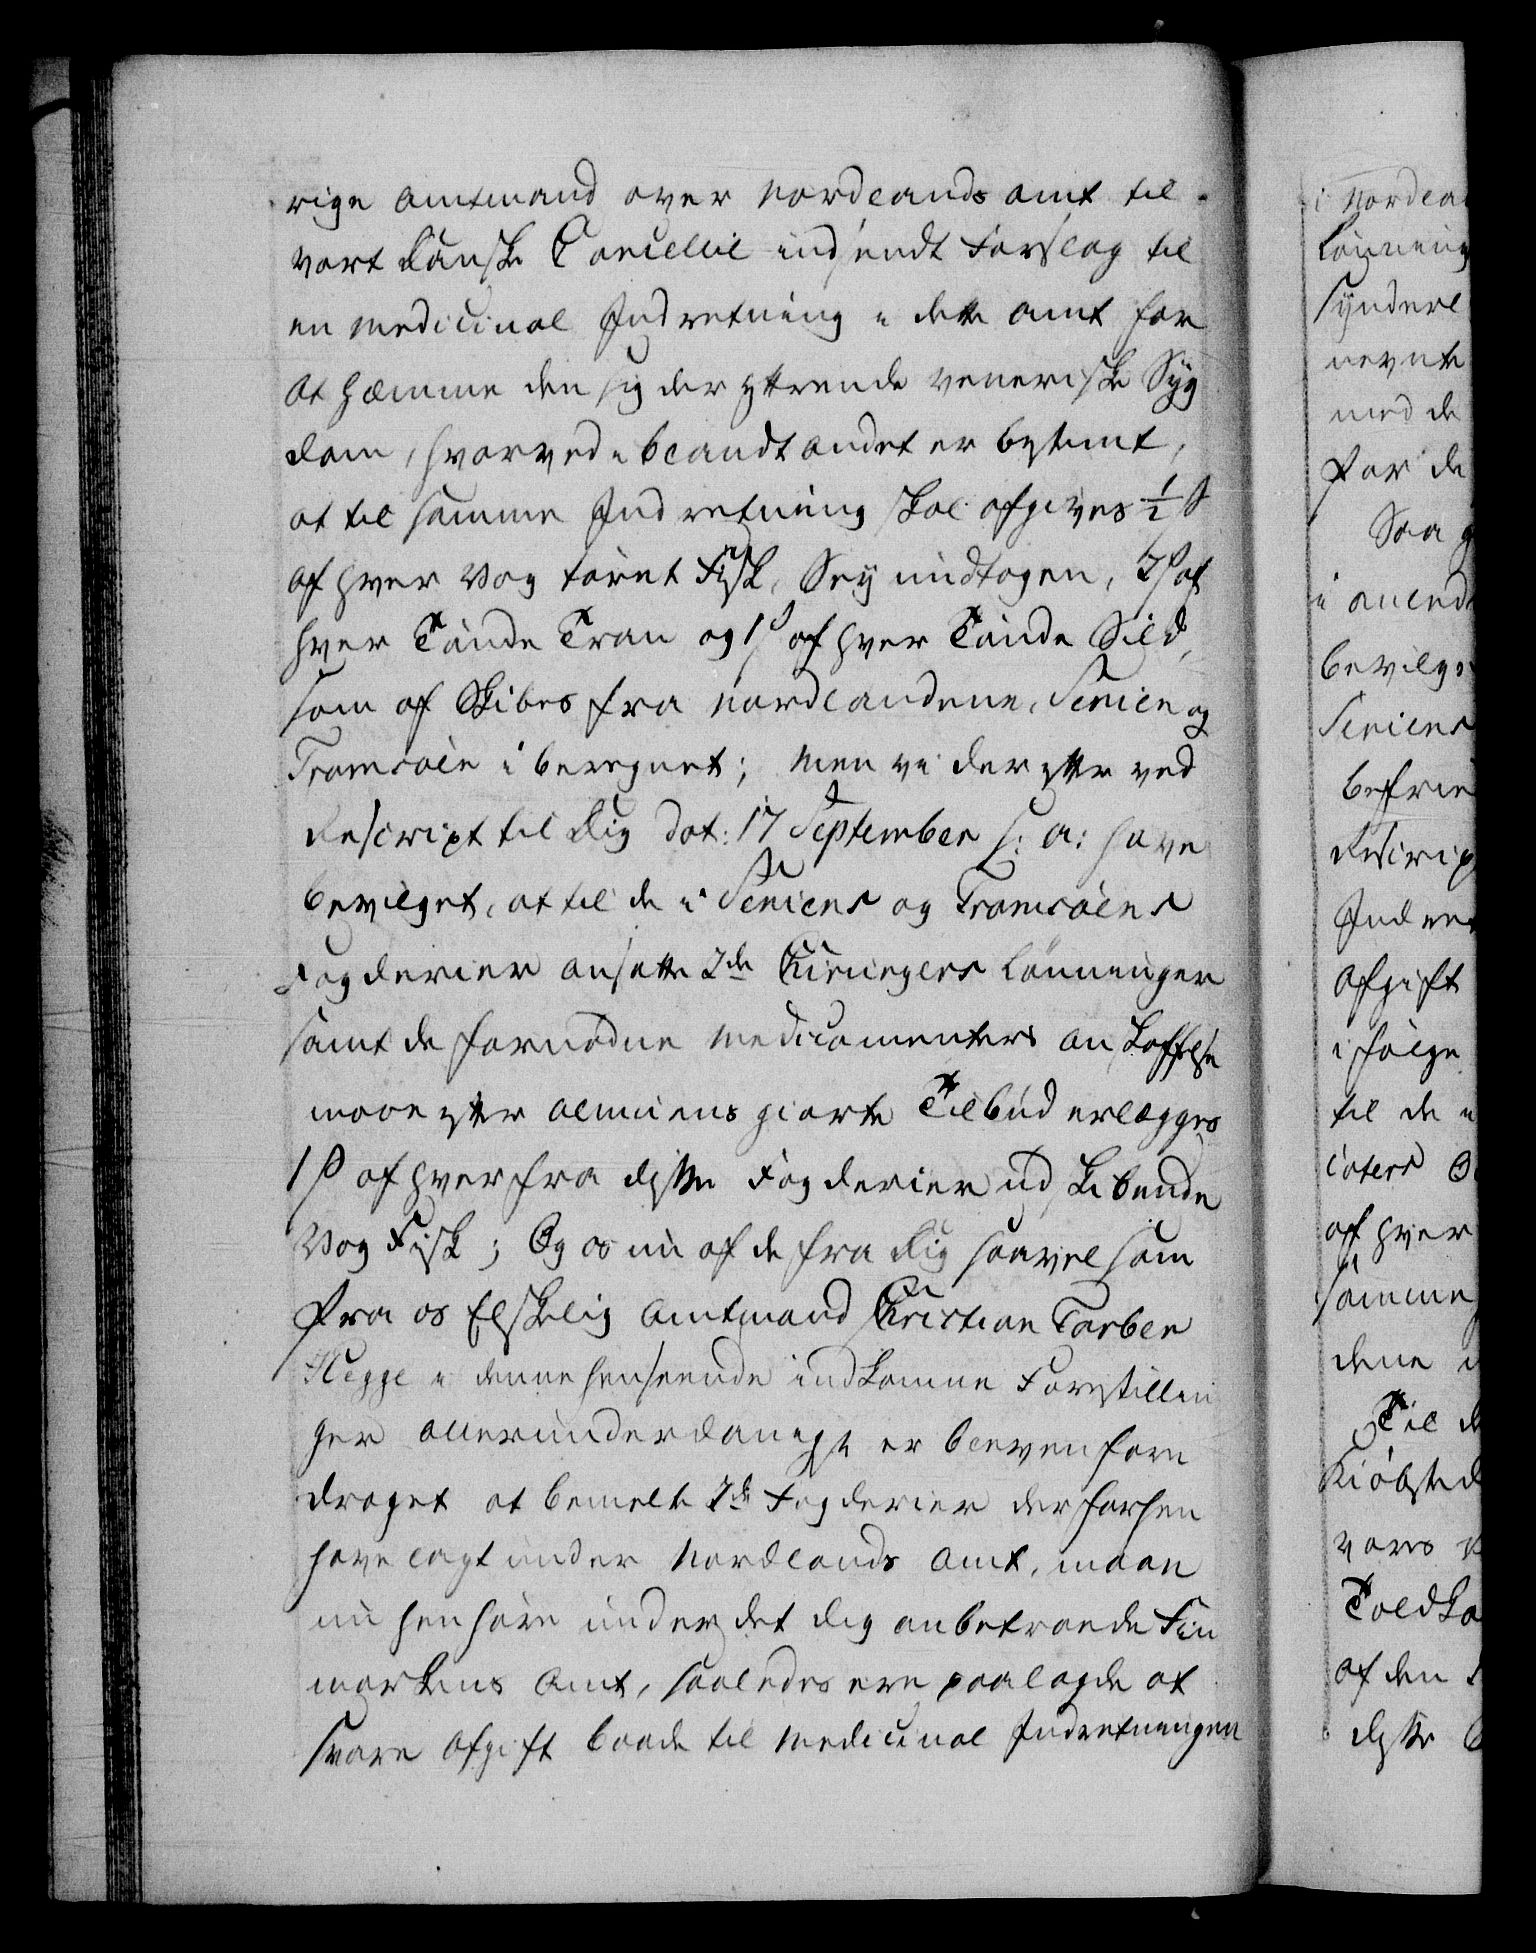 rige Amtmand over Nordlands Amt til
vort Danske Cancellie indsendt Forslag til
en Medicinal Indretning i dette Amt for
at hæmme den sig der yttrende veneriske Syg
dom, hvorved iblandt andet er bestemt,
at til samme Indretning skal afgives ½ s
af hver Vog tørret Fisk, Sey undtagen, 2 s af
hver Tønde Tran og 1 s af hver Tønde Sild,
som af Skibes fra Nordlandene, Senien og
Tromsøen iberegnet; Men vi derefter ved
Rescript til Dig dat: 17 September s: a: have
bevilget, at til de i Seniens og Tromsøens
Fogderier ansatte 2de Chirurgers Lønninger
samt de fornødne Medicamenters Anskaffelse
maae efter Almuens giorte Tilbud erlægges
1 s af hver fra disse Fogderier udskibende
Vog Fisk; Og os nu af de fra Dig saavel som
fra os Elskelig Amtmand Christian Torber
Hegge i denne henseende indkomne Forestillin
ger allerunderdanigst er bleven fore
draget at bemelte 2de Fogderier der forhen
have lagt under Nordlands Amt, maae
nu henhøre under det dig anbetroede Fin
markens Amt, saaledes ere paalagde at
svare Afgift baade til Medicinal Indretningen
i Nordlan
Lønning
synderl
nevnte
med de
for de
Saa g
i anled
bevilge
Seniens
befrie
Rescrip
Indret
Afgift
ifølge
til de
af hver
samme
dene
Til d
Kiøbsted
vores
Toldka
af den
disse